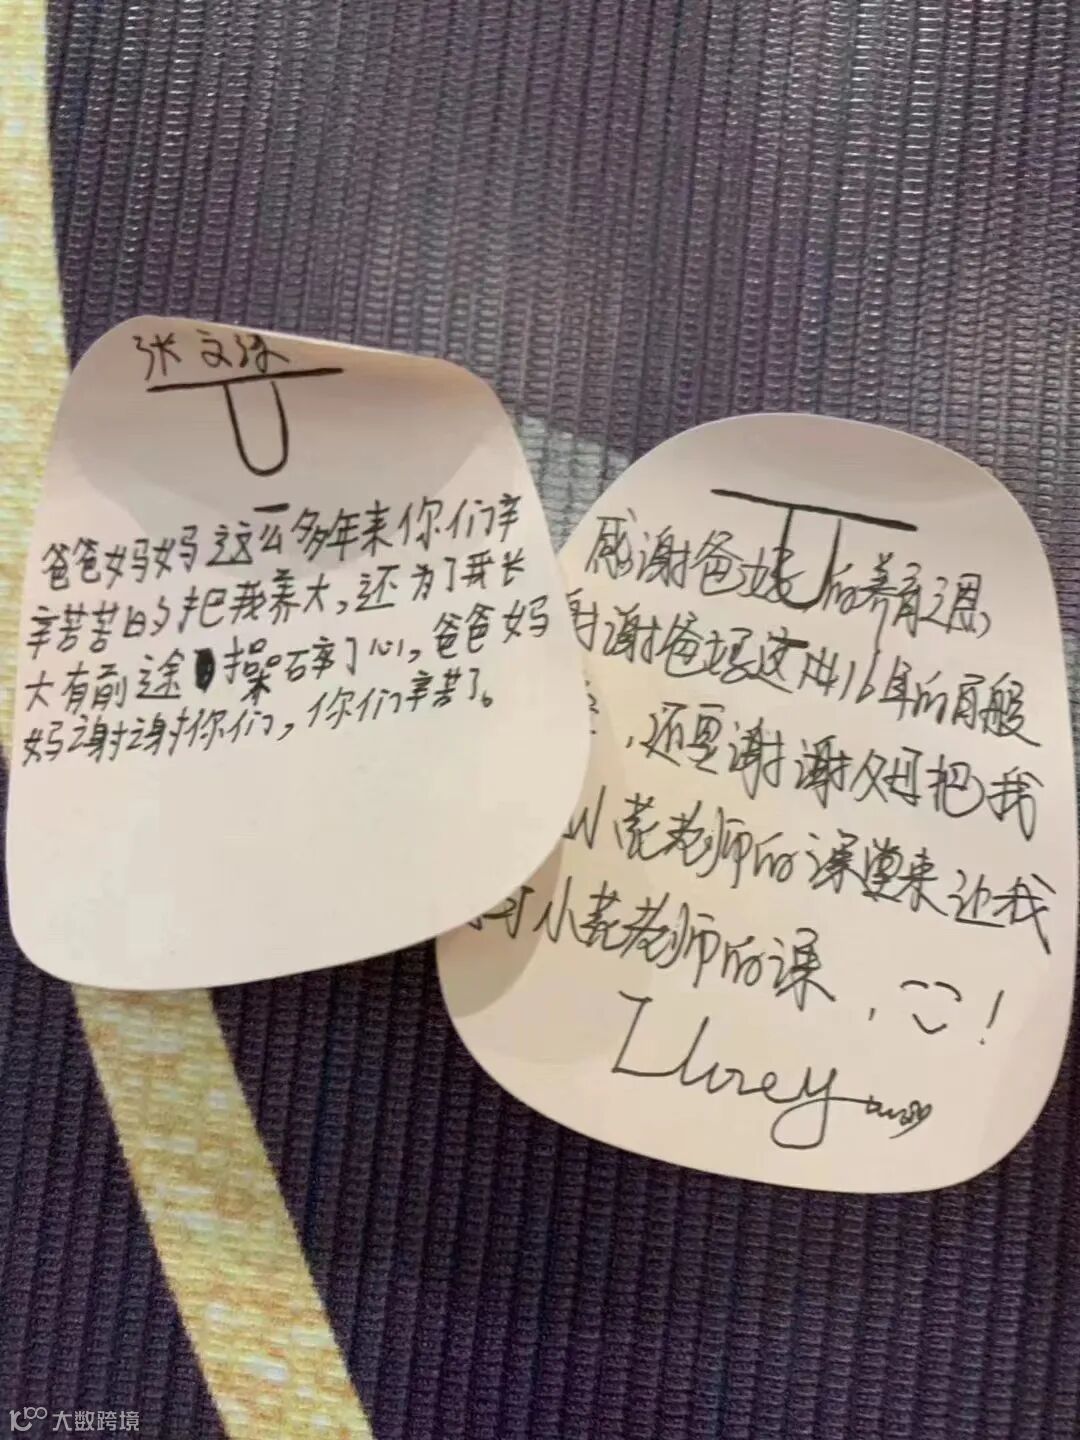 张文
爸爸妈妈这么多年来你们辛
辛苦苦的把我养大，还为了我长
大有前途操碎了心，爸爸妈
妈谢谢你们，你们辛苦了。
感谢爸妈的养育之恩，
谢谢爸妈这16年的百般
，还要谢谢父母把我
小花老师的课堂来让我
小花老师的课，！
大数跨境